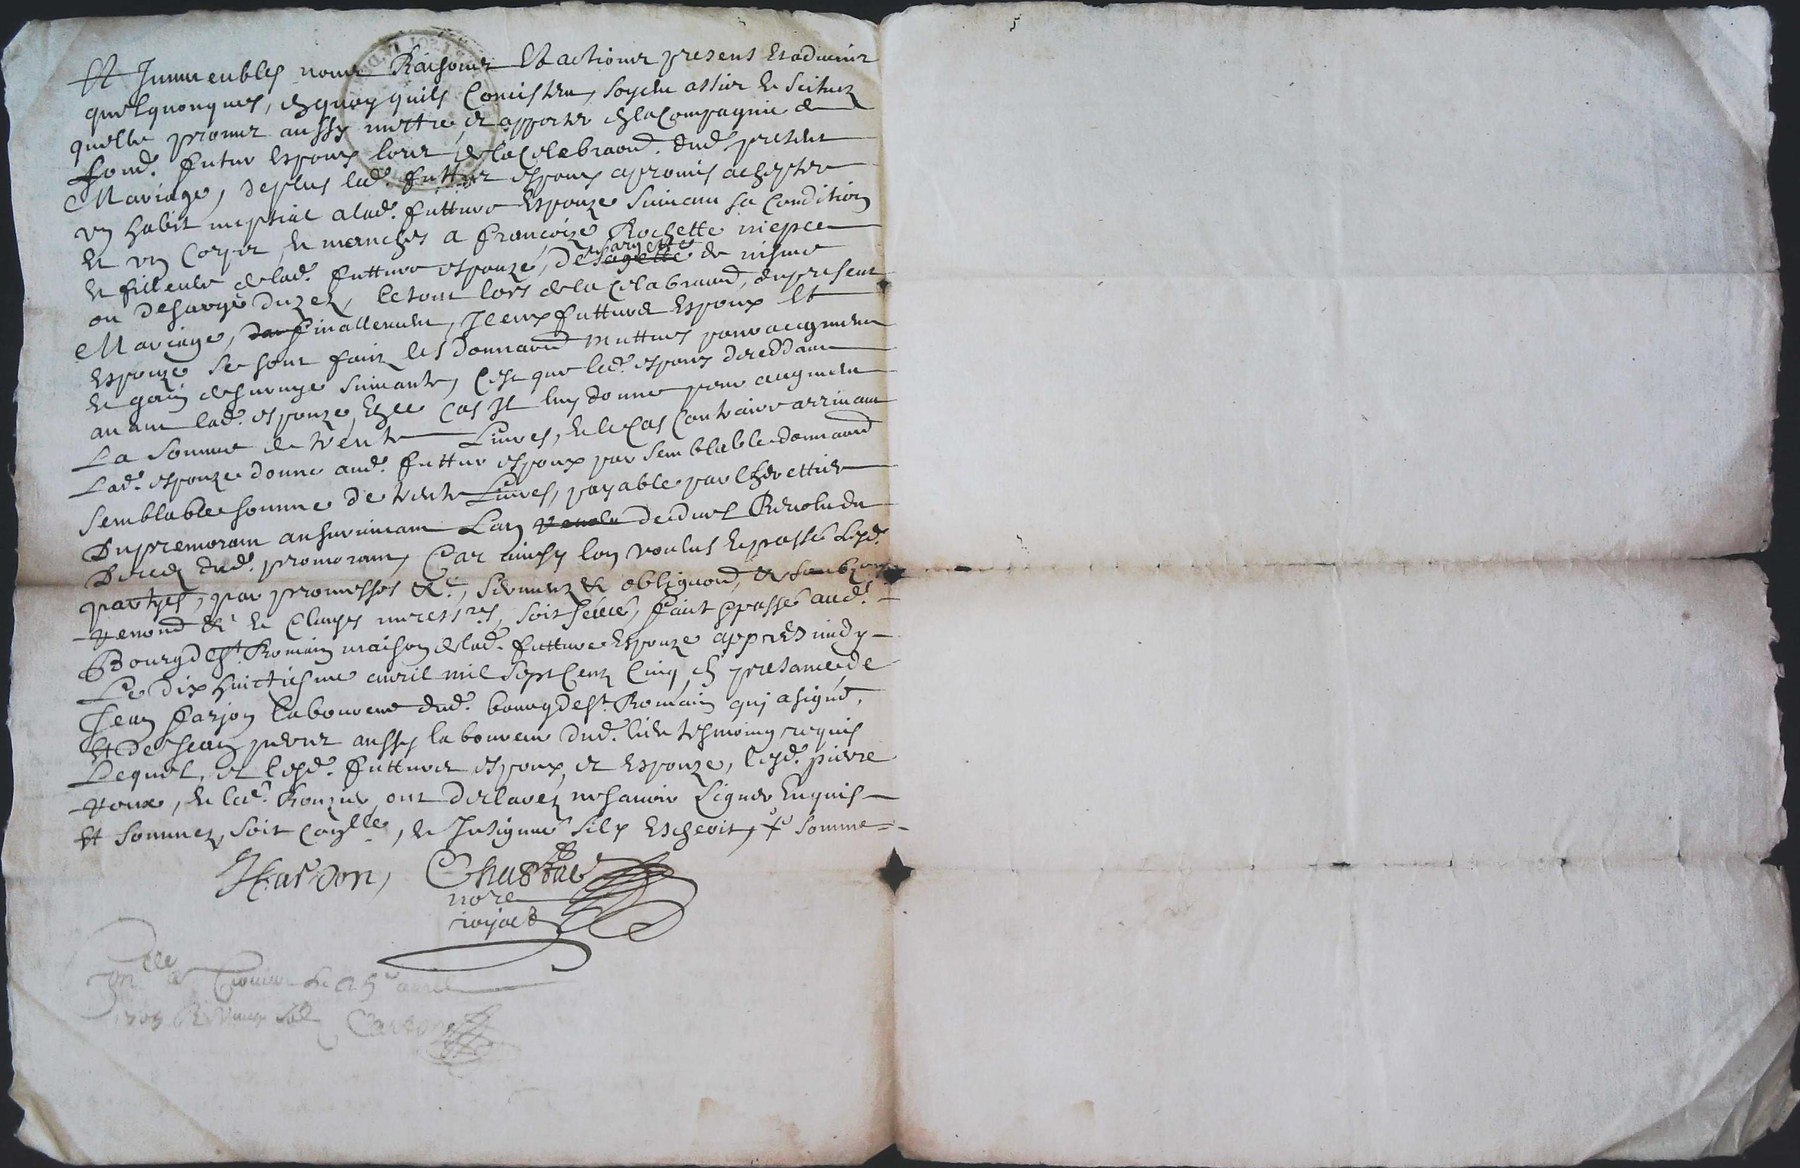 Et Immeubles noms Raisons Et actions presens Et advenir
quelquonques, En quoy quils Consistent, soyent assiz Et scituez
quelle promet aussy mettre et apporter En la Compagnie de
sond. futur Espoux lors de la Celebraon. dud. present
Mariage, de plus led. futtur espoux a promis achepter
un habit nuptial a lad. futture Espouze suivant sa Condition
Et un Corps et manches a françoize Rochette niepce
Et fillieule de lad. futture espouze, de sargette de nisme
ou de sarge duzez, le tout lors de la Celabraond. du present
Mariage, finallement, Iceux futturs Espoux Et
Espouze se sont faitz les donnaons muttues pour augment
Et gain de survuye suivante, Cest que led. espoux decedant
avant lad. espouze En ce Cas Il luy donne pour augment
La somme de trente Livres, Et le Cas Contraire arrivant
Lad. espouze donne aud. futtur espoux par semblable donnaond
semblable somme de trente Livres, payable par lherettier
Du premorant au survivant Lan de dueil Revolu du
Deces dud. premorant, Car ainsy lon voulus Et passé lesd.
partyes, par promesses &c, sermentz & obligaond, &
Renond & Et Clauzes necessres, soit scellé, fait & passé aud.
Bourg de St Romain maison de lad. futture Espouze appres midy
Le dix huictiesme avril mil sept Centz Cinq En presance de
Jean farjon laboureur dud. bourg de St Romain quy a signé,
Et de Jean aussy laboureur dud. lieu tesmoing requis
Lequel, et lesd. futturs espoux et Espouze, lesd. pierre
Roux, Et led. ont declarez ne scavoir signer Enquis
Et sommez, soit Conlle, Et Insignue sil y Eschoit, somme
Jfarjon,
nore
royal
Conlle a le 25e avril
1705